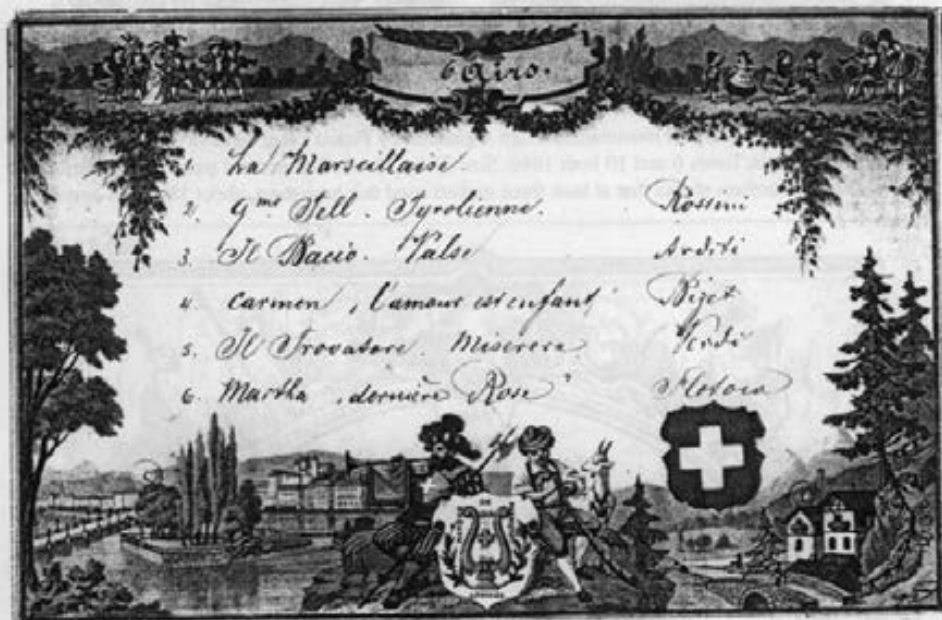 6 Airs.
1. La Marseillaise
2. Gme Tell. Tyrolienne. Rossini
3. Il Bacio. Valse Arditi
4. Carmen, l'amour est enfant" Bizet
5. Il Trovatore. Miserere. Verdi
6. Martha, dernière Rose" Flotow